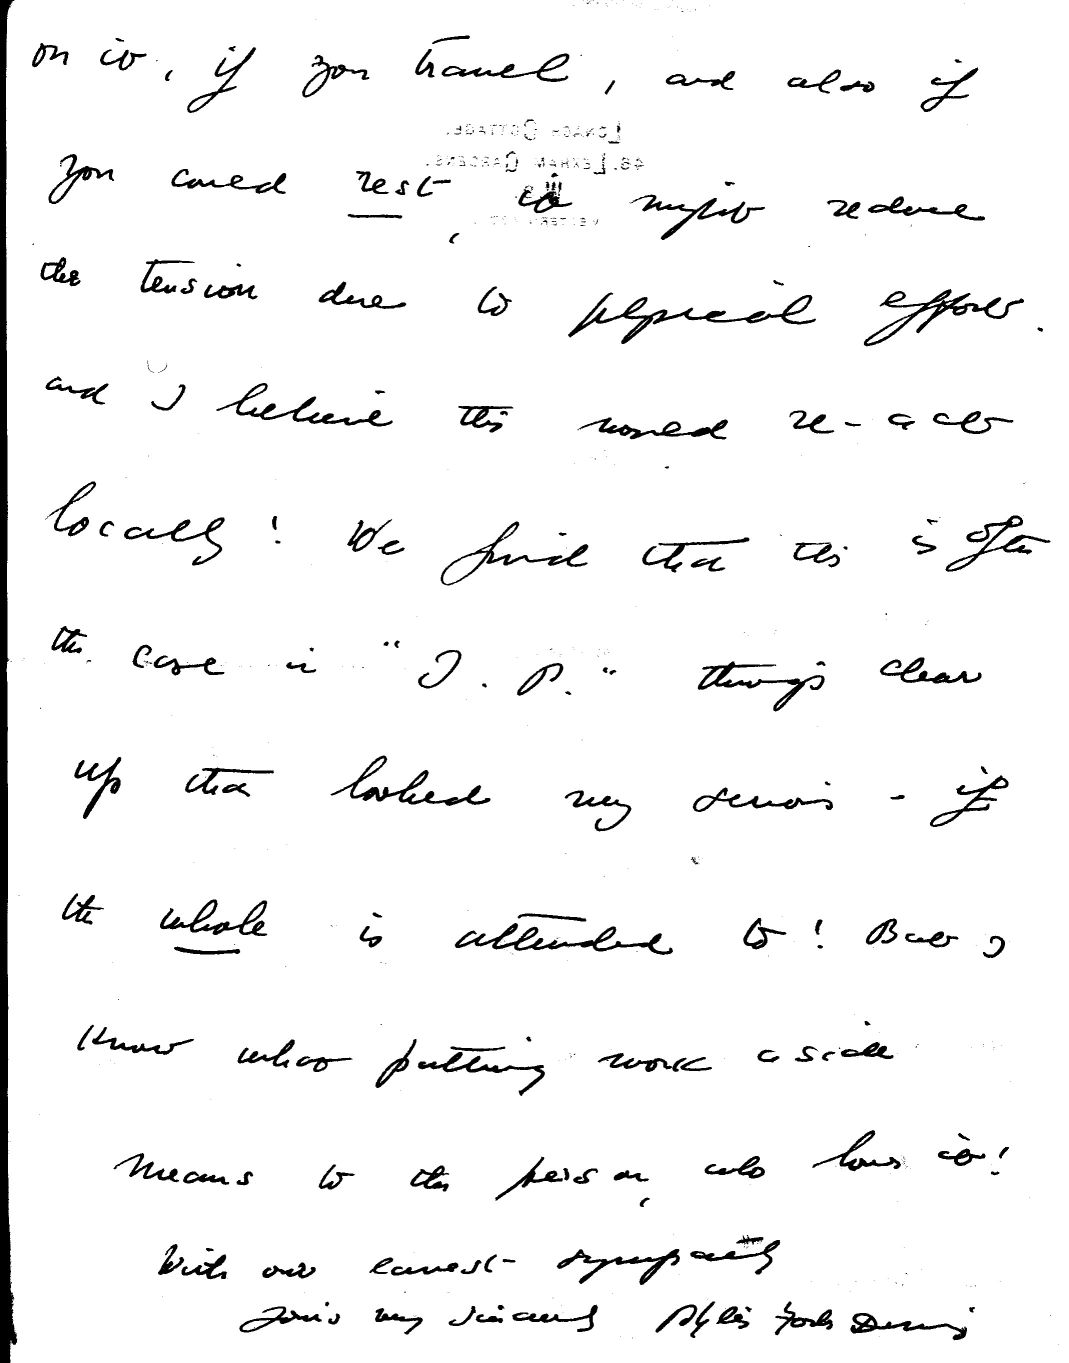 on it, if you travel, and also if
Lonach Cottage.
48. Lexham Gardens.
W. 8
you could rest, it might reduce
the tension due to physical effort.
and I believe this would re-act
locally! We find that this is often
the case in "I. P." things clear
up that looked very serious - if
the whole is attended to! But I
know what putting work aside
means to the person, who loves it!
With our earnest sympathy
Yours very sincerely